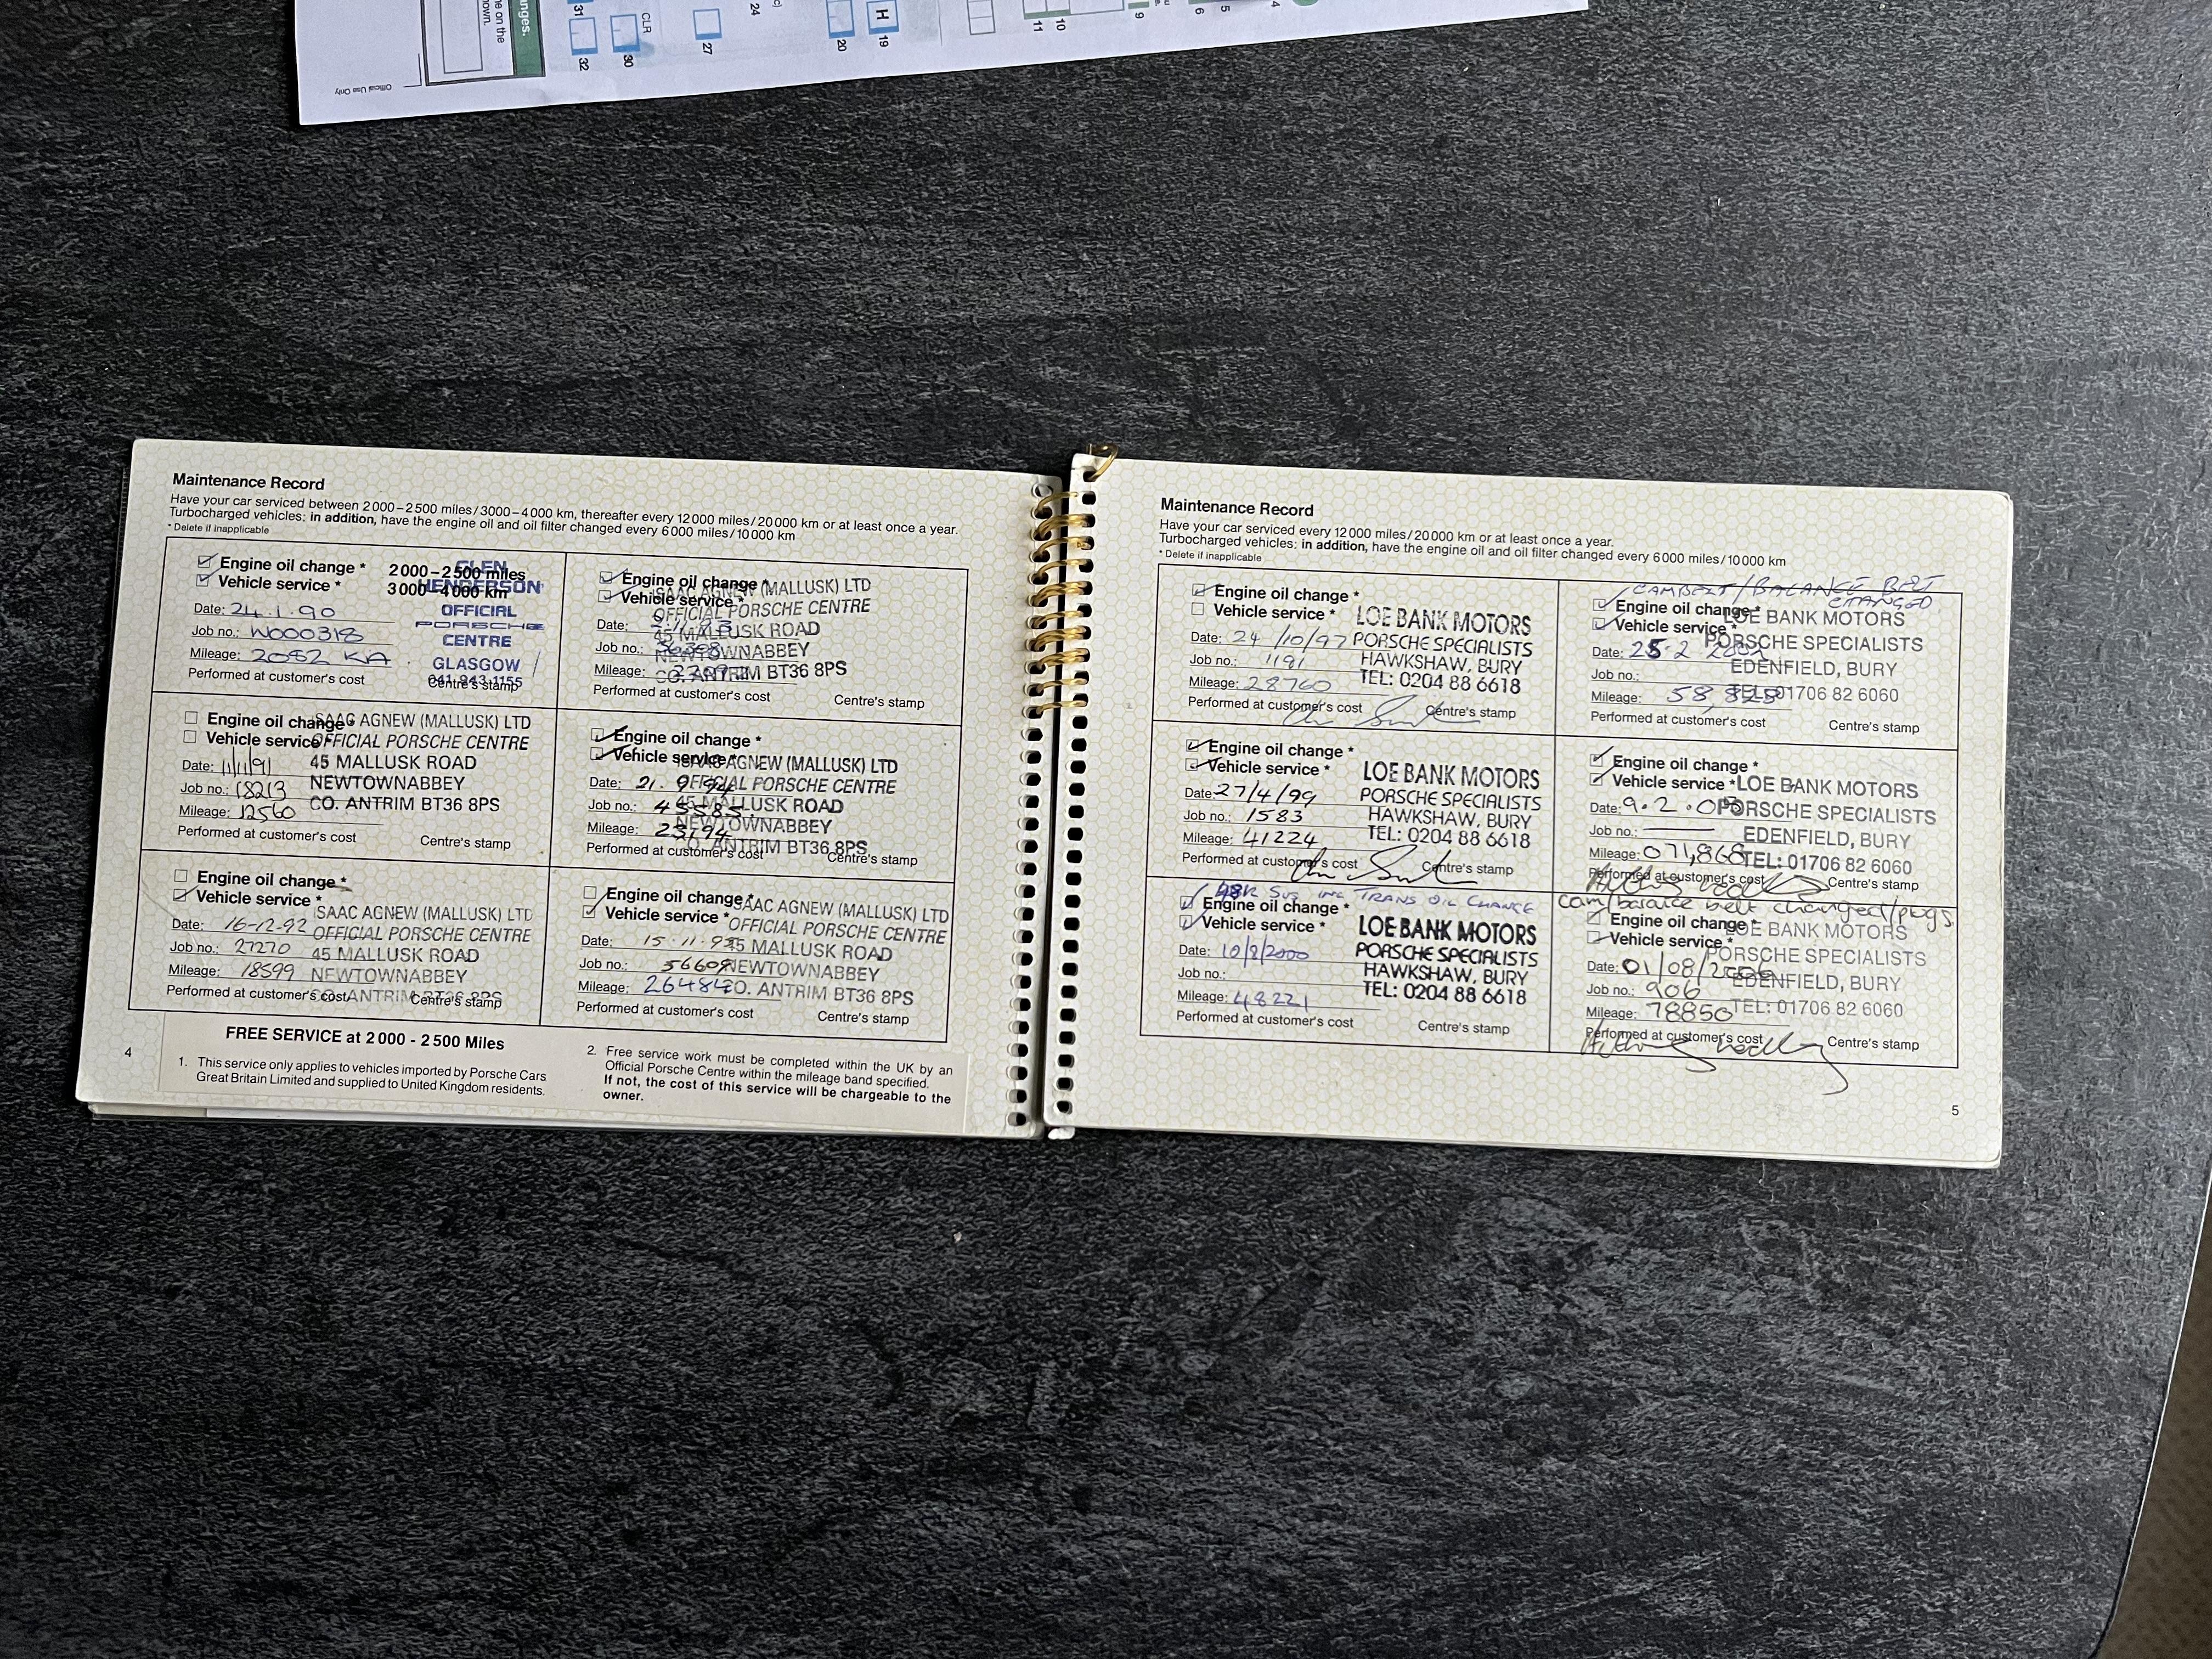 nges.
e on the
own.
Official Use Only
31
32
CLR
30
27
24
20
H
19
11
10
9
6
5
4
Maintenance Record
Have your car serviced between 2000–2500 miles/3000–4000 km, thereafter every 12000 miles/20000 km or at least once a year.
Turbocharged vehicles: in addition, have the engine oil and oil filter changed every 6000 miles/10000 km
* Delete if inapplicable
Engine oil change *
Vehicle service *
2000–2500 miles
3000–4000 km
Date: 24.1.90
Job no.: W000318
Mileage: 2082 KA
Performed at customer's cost
Centre's stamp
GLEN
HENDERSON
OFFICIAL
PORSCHE
CENTRE
GLASGOW
041-943-1155
Engine oil change *
Vehicle service *
Date: 11/11/91
Job no.: 18213
Mileage: 12560
Performed at customer's cost
Centre's stamp
ISAAC AGNEW (MALLUSK) LTD
OFFICIAL PORSCHE CENTRE
45 MALLUSK ROAD
NEWTOWNABBEY
CO. ANTRIM BT36 8PS
Engine oil change *
Vehicle service *
Date: 16-12-92
Job no.: 27270
Mileage: 18599
Performed at customer's cost
Centre's stamp
ISAAC AGNEW (MALLUSK) LTD
OFFICIAL PORSCHE CENTRE
45 MALLUSK ROAD
NEWTOWNABBEY
CO. ANTRIM BT36 8PS
Engine oil change *
Vehicle service *
Date:
Job no.:
Mileage:
Performed at customer's cost
Centre's stamp
ISAAC AGNEW (MALLUSK) LTD
OFFICIAL PORSCHE CENTRE
45 MALLUSK ROAD
NEWTOWNABBEY
CO. ANTRIM BT36 8PS
Engine oil change *
Vehicle service *
Date: 21. 9. 94
Job no.: 45585
Mileage: 23194
Performed at customer's cost
Centre's stamp
ISAAC AGNEW (MALLUSK) LTD
OFFICIAL PORSCHE CENTRE
45 MALLUSK ROAD
NEWTOWNABBEY
CO. ANTRIM BT36 8PS
Engine oil change *
Vehicle service *
Date: 15.11.95
Job no.: 56609
Mileage: 26484
Performed at customer's cost
Centre's stamp
ISAAC AGNEW (MALLUSK) LTD
OFFICIAL PORSCHE CENTRE
45 MALLUSK ROAD
NEWTOWNABBEY
CO. ANTRIM BT36 8PS
FREE SERVICE at 2000 - 2500 Miles
1. This service only applies to vehicles imported by Porsche Cars
Great Britain Limited and supplied to United Kingdom residents.
2. Free service work must be completed within the UK by an
Official Porsche Centre within the mileage band specified.
If not, the cost of this service will be chargeable to the
owner.
4
Maintenance Record
Have your car serviced every 12000 miles/20000 km or at least once a year.
Turbocharged vehicles: in addition, have the engine oil and oil filter changed every 6000 miles/10000 km
* Delete if inapplicable
Engine oil change *
Vehicle service *
Date: 24/10/97
Job no.: 1191
Mileage: 28760
Performed at customer's cost
Centre's stamp
LOE BANK MOTORS
PORSCHE SPECIALISTS
HAWKSHAW, BURY
TEL: 0204 88 6618
Engine oil change *
Vehicle service *
Date: 27/4/99
Job no.: 1583
Mileage: 41224
Performed at customer's cost
Centre's stamp
LOE BANK MOTORS
PORSCHE SPECIALISTS
HAWKSHAW, BURY
TEL: 0204 88 6618
48K SVS INC TRANS OIL CHANGE
Engine oil change *
Vehicle service *
Date: 10/8/2000
Job no.:
Mileage: 48221
Performed at customer's cost
Centre's stamp
LOE BANK MOTORS
PORSCHE SPECIALISTS
HAWKSHAW, BURY
TEL: 0204 88 6618
CAMBELT/BALANCE BELT
CHANGED
Engine oil change *
Vehicle service *
Date: 25.2 2002
Job no.:
Mileage: 58,825
Performed at customer's cost
Centre's stamp
LOE BANK MOTORS
PORSCHE SPECIALISTS
EDENFIELD, BURY
TEL: 01706 82 6060
Engine oil change *
Vehicle service *
Date: 9.2.05
Job no.:
Mileage: 071,868
Performed at customer's cost
Centre's stamp
LOE BANK MOTORS
PORSCHE SPECIALISTS
EDENFIELD, BURY
TEL: 01706 82 6060
cam/balance belt changed/plugs
Engine oil change *
Vehicle service *
Date: 01/08/2006
Job no.: 906
Mileage: 78850
Performed at customer's cost
Centre's stamp
LOE BANK MOTORS
PORSCHE SPECIALISTS
EDENFIELD, BURY
TEL: 01706 82 6060
5